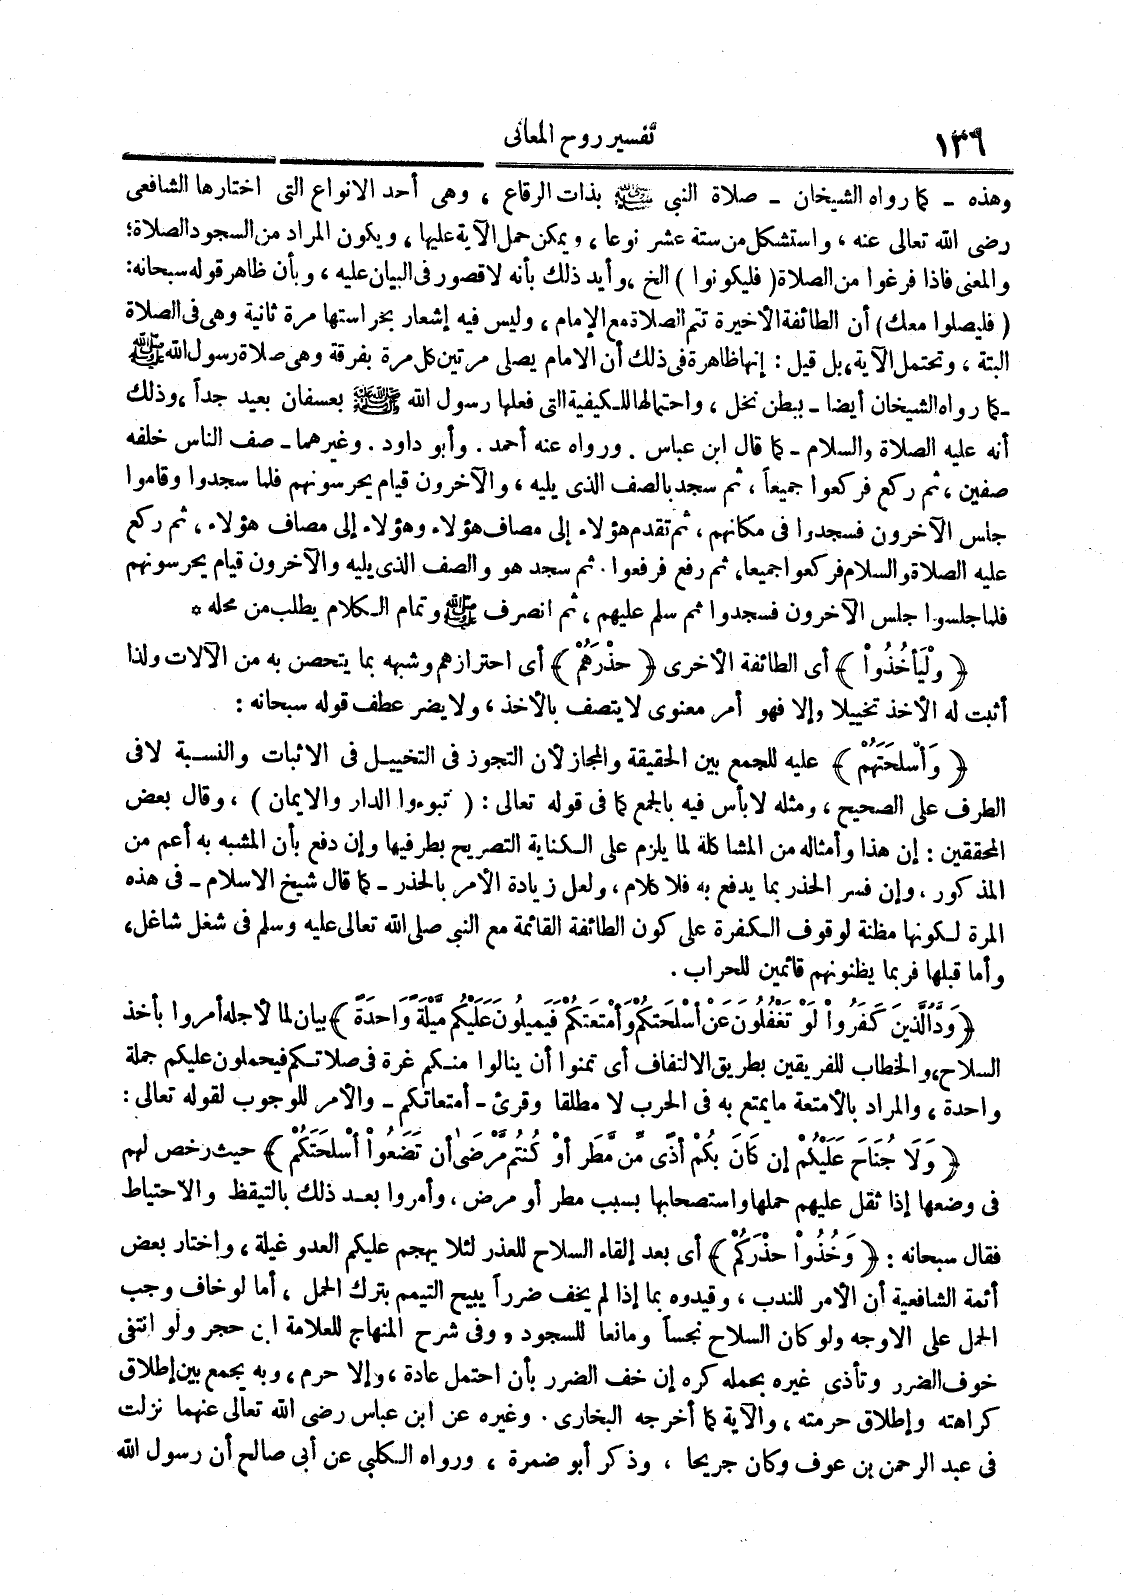 ١٣٦
تفسير روح المعانى
وهذه ـ كما رواه الشيخان ـ صلاة النبي ﷺ بذات الرقاع ، وهى أحد الانواع التى اختارها الشافعى
رضى الله تعالى عنه ، واستشكل من ستة عشر نوعا ، ويمكن حمل الآية عليها ، ويكون المراد من السجود الصلاة؛
والمعنى فاذا فرغوا من الصلاة ( فليكونوا ) الخ ، وأيد ذلك بأنه لاقصور فى البيان عليه ، وبأن ظاهر قوله سبحانه:
( فليصلوا معك) أن الطائفة الأخيرة تتم الصلاة مع الإمام ، وليس فيه إشعار بحراستها مرة ثانية وهى فى الصلاة
البتة ، وتحتمل الآية ، بل قيل : إنها ظاهرة فى ذلك أن الامام يصلى مرتين كل مرة بفرقة وهى صلاة رسول الله ﷺ
ـ كما رواه الشيخان أيضا ـ ببطن نخل ، واحتمالها للكيفية التى فعلها رسول الله ﷺ بعسفان بعيد جداً ، وذلك
أنه عليه الصلاة والسلام ـ كما قال ابن عباس . ورواه عنه أحمد . وأبو داود . وغيرهما ـ صف الناس خلفه
صفين ، ثم ركع فركعوا جميعاً ، ثم سجد بالصف الذى يليه ، والآخرون قيام يحرسونهم فلما سجدوا وقاموا
جلس الآخرون فسجدوا فى مكانهم ، ثم تقدم هؤلاء إلى مصاف هؤلاء وهؤلاء إلى مصاف هؤلاء ، ثم ركع
عليه الصلاة والسلام فركعوا جميعا، ثم رفع فرفعوا . ثم سجد هو والصف الذى يليه والآخرون قيام يحرسونهم
فلما جلسوا جلس الآخرون فسجدوا ثم سلم عليهم ، ثم انصرف ﷺ وتمام الكلام يطلب من محله *
﴿ وَلْيَأْخُذُواْ ﴾ أى الطائفة الأخرى ﴿ حِذْرَهُمْ ﴾ أى احترازهم وشبهه بما يتحصن به من الآلات ولذا
أثبت له الأخذ تخييلا وإلا فهو أمر معنوى لا يتصف بالأخذ ، ولا يضر عطف قوله سبحانه :
﴿ وَأَسْلِحَتَهُمْ ﴾ عليه للجمع بين الحقيقة والمجاز لأن التجوز فى التخييل فى الاثبات والنسبة لافى
الطرف على الصحيح ، ومثله لابأس فيه بالجمع كما فى قوله تعالى : ( تبوءوا الدار والايمان ) ، وقال بعض
المحققين : إن هذا وأمثاله من المشاكلة لما يلزم على الكناية التصريح بطرفيها وإن دفع بأن المشبه به أعم من
المذكور ، وإن فسر الحذر بما يدفع به فلا كلام ، ولعل زيادة الأمر بالحذر ـ كما قال شيخ الاسلام ـ فى هذه
المرة لكونها مظنة لوقوف الكفرة على كون الطائفة القائمة مع النبي صلى الله تعالى عليه وسلم فى شغل شاغل،
وأما قبلها فربما يظنونهم قائمين للحراب .
﴿ وَدَّ الَّذِينَ كَفَرُواْ لَوْ تَغْفُلُونَ عَنْ أَسْلِحَتِكُمْ وَأَمْتِعَتِكُمْ فَيَمِيلُونَ عَلَيْكُم مَّيْلَةً وَاحِدَةً ﴾ بيان لما لأجله أمروا بأخذ
السلاح ، والخطاب للفريقين بطريق الالتفات أى تمنوا أن ينالوا منكم غرة فى صلاتكم فيحملون عليكم جملة
واحدة ، والمراد بالأمتعة مايمتع به فى الحرب لا مطلقا وقرئ ـ أمتعاتكم ـ والأمر للوجوب لقوله تعالى :
﴿ وَلَا جُنَاحَ عَلَيْكُمْ إِن كَانَ بِكُمْ أَذًى مِّن مَّطَرٍ أَوْ كُنتُم مَّرْضَى أَن تَضَعُواْ أَسْلِحَتَكُمْ ﴾ حيث رخص لهم
فى وضعها إذا ثقل عليهم حملها واستصحابها بسبب مطر أو مرض ، وأمروا بعد ذلك بالتيقظ والاحتياط
فقال سبحانه : ﴿ وَخُذُواْ حِذْرَكُمْ ﴾ أى بعد إلقاء السلاح للعذر لئلا يهجم عليكم العدو غيلة ، واختار بعض
أئمة الشافعية أن الأمر للندب ، وقيدوه بما إذا لم يخف ضرراً يبيح التيمم بترك الحمل ، أما لو خاف وجب
الحمل على الاوجه ولو كان السلاح نجساً ومانعا للسجود ، وفى شرح المنهاج للعلامة ابن حجر ولو انتفى
خوف الضرر وتأذى غيره بحمله كره إن خف الضرر بأن احتمل عادة ، وإلا حرم ، وبه يجمع بين إطلاق
كراهته وإطلاق حرمته ، والآية كما أخرجه البخارى . وغيره عن ابن عباس رضى الله تعالى عنهما نزلت
فى عبد الرحمن بن عوف وكان جريحا ، وذكر أبو ضمرة ، ورواه الكلبي عن أبى صالح أن رسول الله